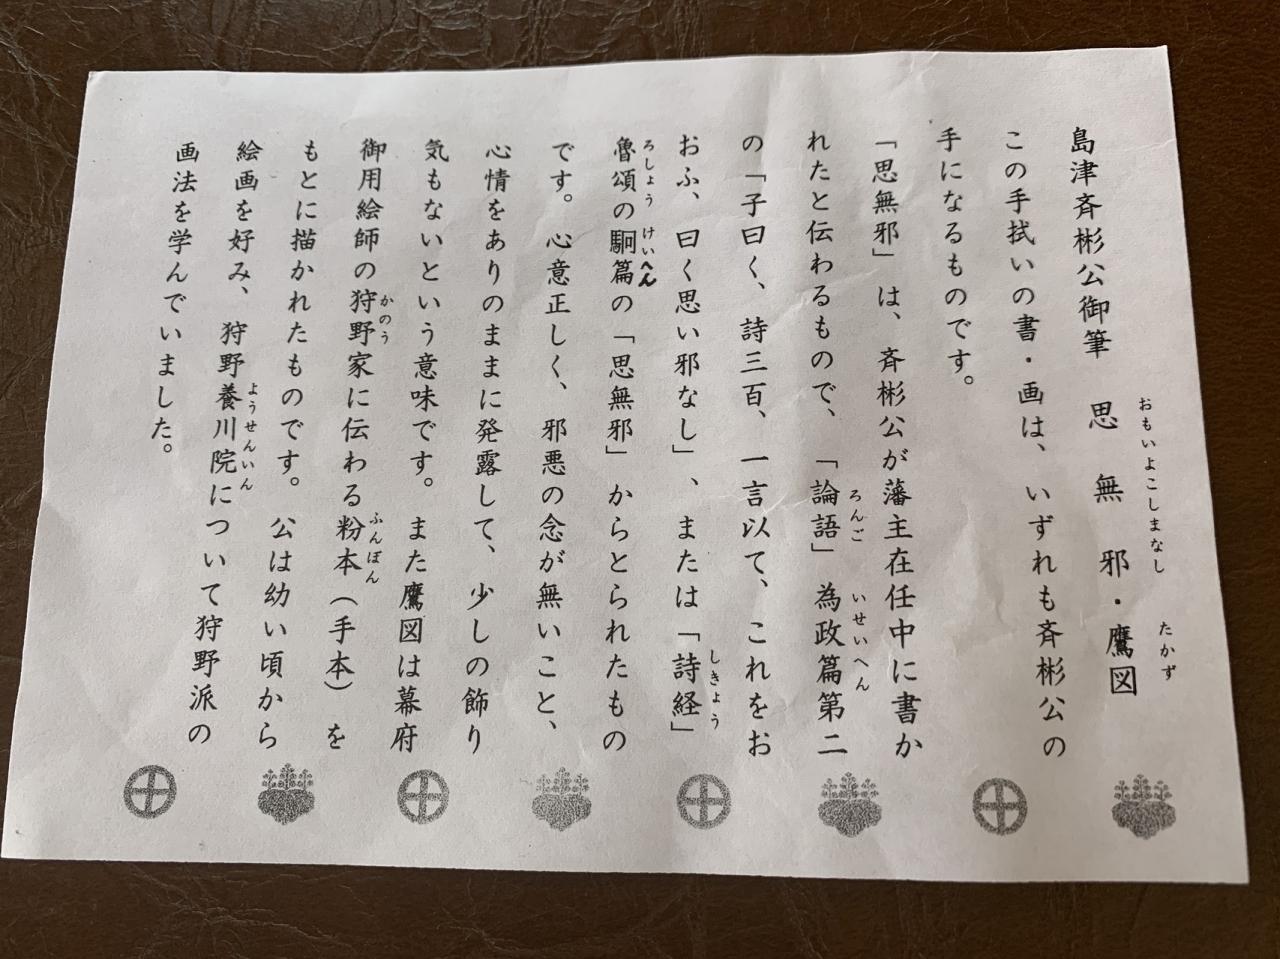 島津斉彬公御筆　思　無　邪・鷹図
おもいよこしまなし
たかず
この手拭いの書・画は、いずれも斉彬公の
手になるものです。
「思無邪」は、斉彬公が藩主在任中に書か
れたと伝わるもので、「論語」為政篇第二
ろんご
いせいへん
の「子曰く、詩三百、一言以て、これをお
おふ、曰く思い邪なし」、または「詩経」
しきょう
魯頌の駉篇の「思無邪」からとられたもの
ろしょう
けいへん
です。心意正しく、邪悪の念が無いこと、
心情をありのままに発露して、少しの飾り
気もないという意味です。また鷹図は幕府
御用絵師の狩野家に伝わる粉本（手本）を
かのう
ふんぽん
もとに描かれたものです。公は幼い頃から
絵画を好み、狩野養川院について狩野派の
ようせんいん
画法を学んでいました。